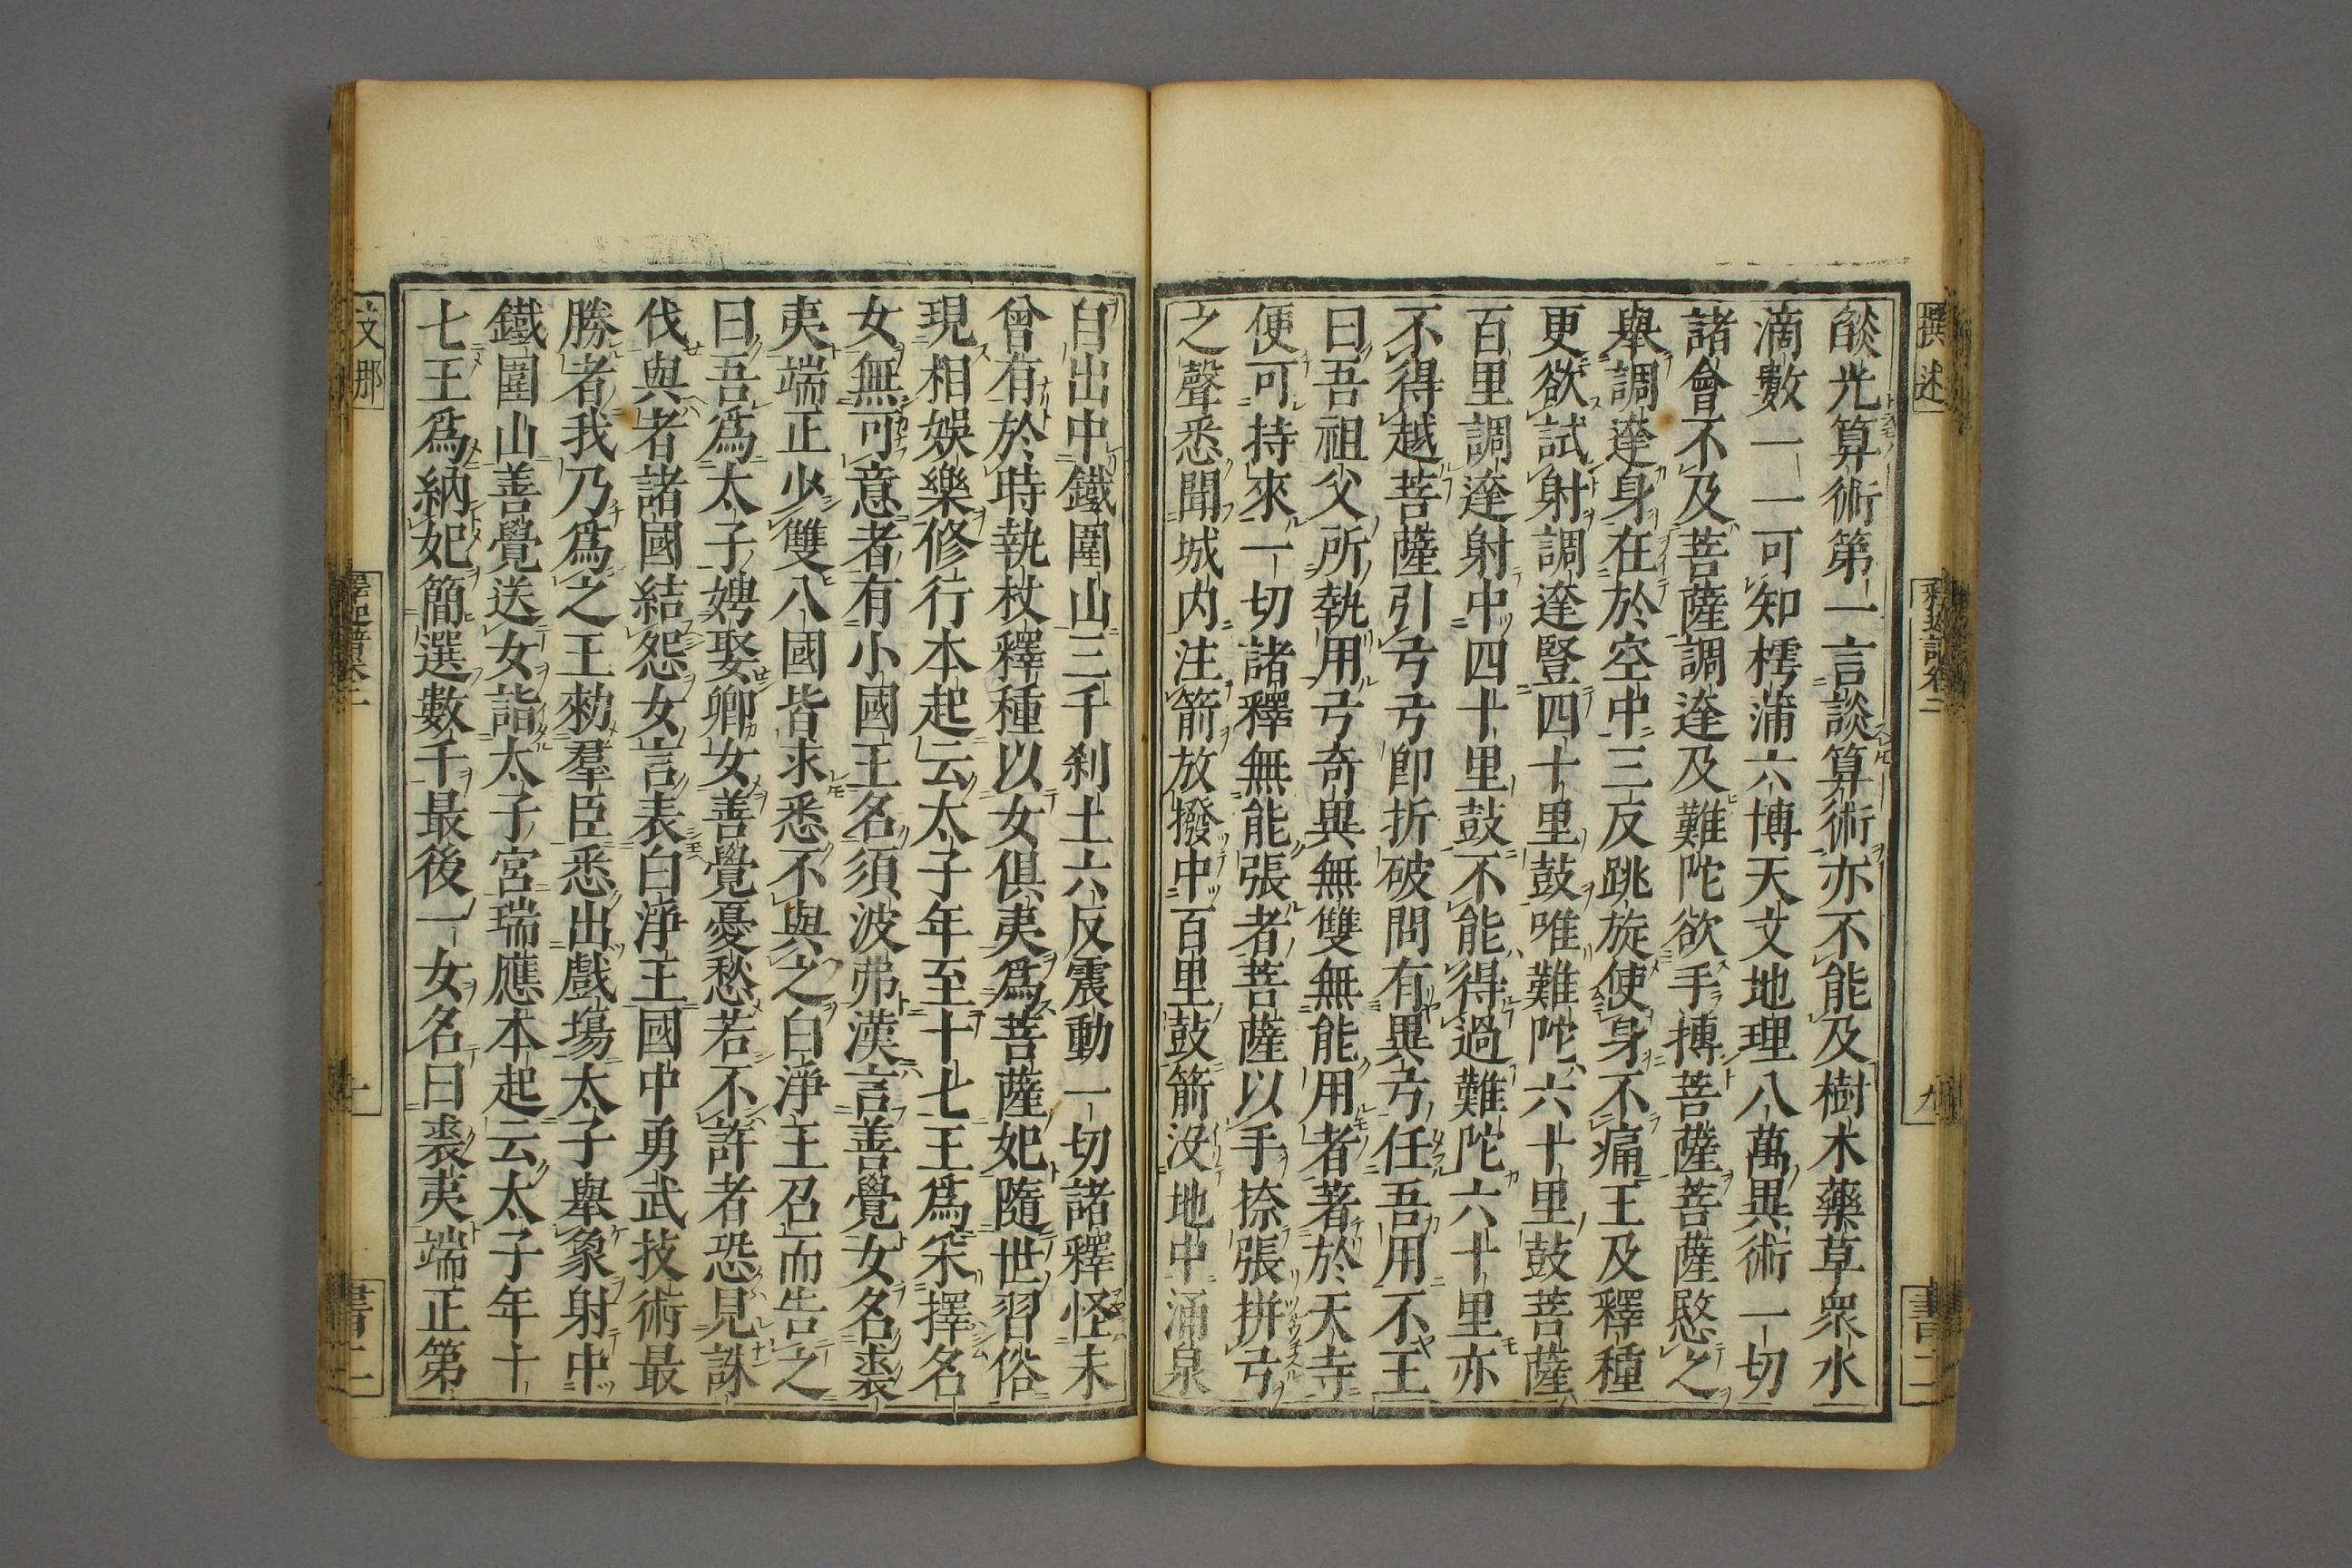 撰述
釋迦譜卷二
九
書二
燄光算術第一言談算術亦不能及樹木藥草衆水
滴數一一可知樗蒲六博天文地理八萬異術一切
諸會不及菩薩調達及難陀欲手搏菩薩菩薩愍之
舉調達身在於空中三反跳旋使身不痛王及釋種
更欲試射調達豎四十里鼓唯難陀六十里鼓菩薩
百里調達射中四十里鼓不能得過難陀六十里亦
不得越菩薩引弓弓卽折破問有異弓任吾用不王
曰吾祖父所執用弓奇異無雙無能用者著於天寺
便可持來一切諸釋無能張者菩薩以手捺張拼弓
之聲悉聞城内注箭放撥中百里鼓箭沒地中涌泉
自出中鐵圍山三千刹土六反震動一切諸釋怪未
曾有於時執杖釋種以女俱夷爲菩薩妃隨世習俗
現相娛樂修行本起云太子年至十七王爲采擇名
女無可意者有小國王名須波弗漢言善覺女名裘
夷端正少雙八國皆求悉不與之白淨王召而告之
曰吾爲太子娉娶卿女善覺憂愁若不許者恐見誅
伐與者諸國結怨女言表白淨王國中勇武技術最
勝者我乃爲之王勑羣臣悉出戲場太子舉象射中
鐵圍山善覺送女詣太子宮瑞應本起云太子年十
七王爲納妃簡選數千最後一女名曰裘夷端正第
支那
書二